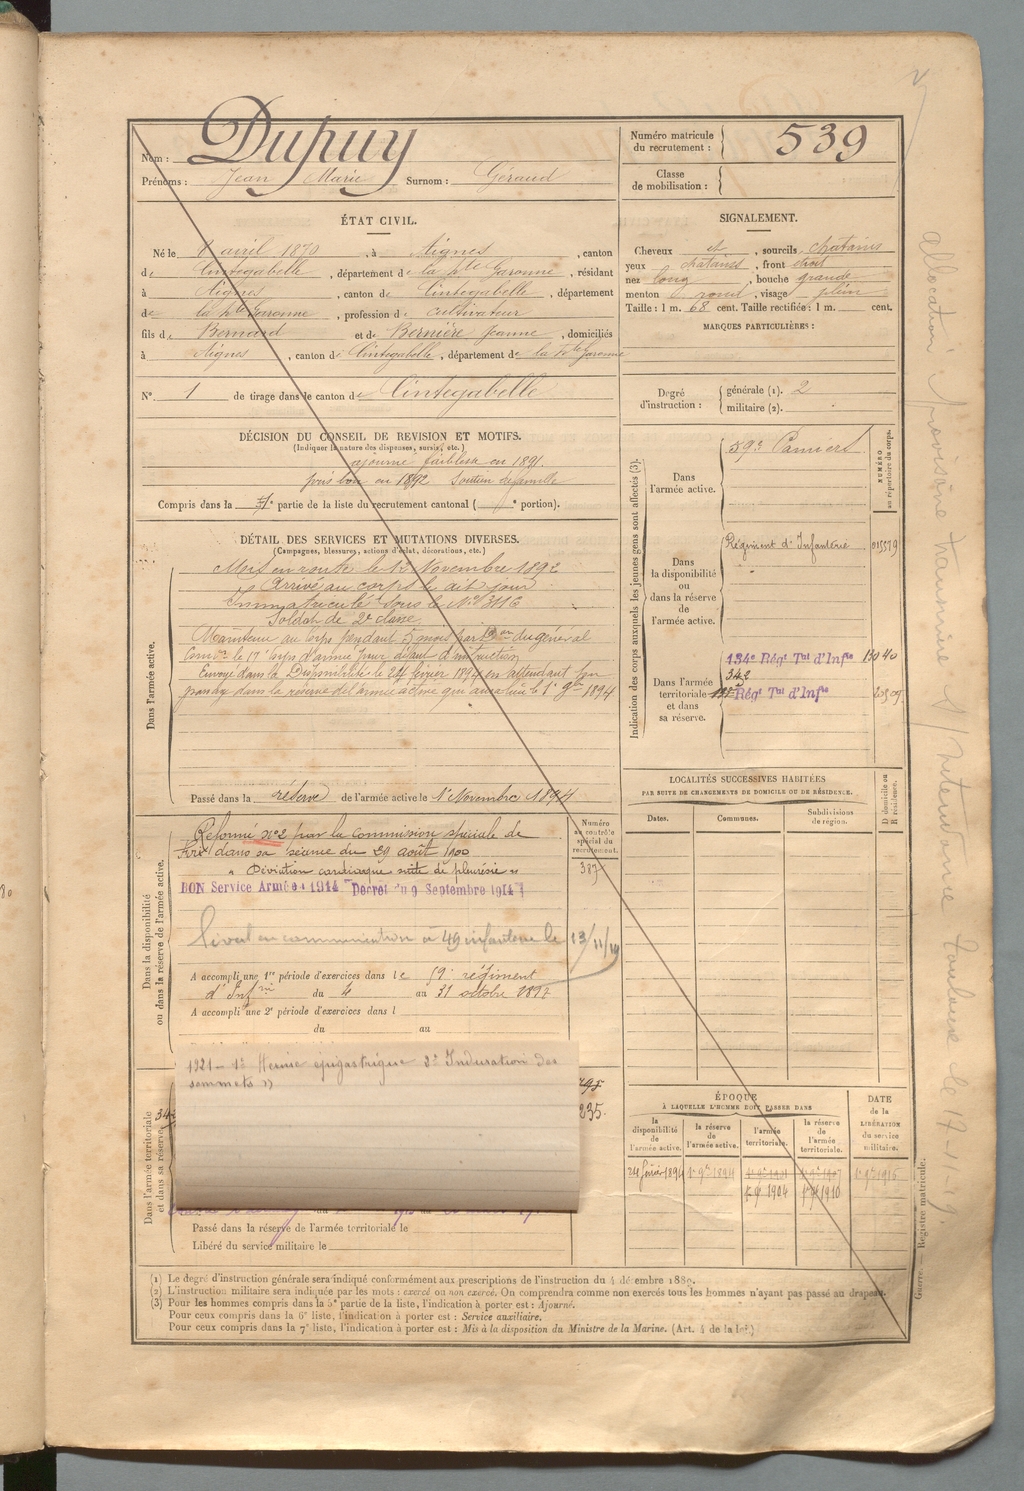 Nom : Dupuy
Prénoms : Jean Marie Surnom : Géraud
Numéro matricule du recrutement : 539
Classe de mobilisation :
ÉTAT CIVIL.
Né le 8 avril 1870, à Aignes, canton
de Cintegabelle, département de la Hte Garonne, résidant
à Aignes, canton de Cintegabelle, département
de la Hte Garonne, profession de cultivateur
fils de Bernard et de Bernière Jeanne, domiciliés
à Aignes, canton de Cintegabelle, département de la Hte Garonne
N° 1 de tirage dans le canton de Cintegabelle
SIGNALEMENT.
Cheveux et, sourcils chatains
yeux chatains, front étroit
nez long, bouche grande
menton rond, visage plein
Taille : 1 m. 68 cent. Taille rectifiée : 1 m. cent.
MARQUES PARTICULIÈRES :
Degré d'instruction : générale (1). 2
militaire (2).
DÉCISION DU CONSEIL DE REVISION ET MOTIFS.
(Indiquer la nature des dispenses, sursis, etc.)
ajourné faiblesse en 1891.
pris bon en 1892 Soutien de famille
Compris dans la partie de la liste du recrutement cantonal ( portion).
DÉTAIL DES SERVICES ET MUTATIONS DIVERSES.
(Campagnes, blessures, actions d'éclat, décorations, etc.)
Dans l'armée active.
Mis en route le 13 Novembre 1892
Arrivé au corps le dit jour
Immatriculé sous le N° 3116
Soldat de 2e classe
Maintenu au corps pendant mois par du général
le 17 Corps d'armée pour défaut d'instruction
Envoyé dans la Disponibilité le 24 février 1894 en attendant son
passage dans la réserve de l'armée active qui aura lieu le 1er 9bre 1894
Passé dans la réserve de l'armée active le 1er Novembre 1894
Indication des corps auxquels les jeunes gens sont affectés (3).
NUMÉRO au répertoire du corps.
Dans l'armée active.
59e Pamiers
Dans la disponibilité ou dans la réserve de l'armée active.
Régiment d'Infanterie 015579
Dans l'armée territoriale et dans sa réserve.
134e Régt Tal d'Infie 13040
342
Régt Tal d'Infie
LOCALITÉS SUCCESSIVES HABITÉES
PAR SUITE DE CHANGEMENTS DE DOMICILE OU DE RÉSIDENCE.
Dates. Communes. Subdivisions de région. D domicile ou R résidence.
Dans la disponibilité ou dans la réserve de l'armée active.
Numéro au contrôle spécial du recrutement.
Réformé n° 2 par la commission spéciale de
Foix dans sa séance du 29 août 1900
" Déviation cardiaque suite de pleurésie "
387
BON Service Armée 1914 Décret du 9 Septembre 1914
en communication à 49 infanterie le 13/11/19
A accompli une 1re période d'exercices dans le 59e régiment
d'Infrie du 4 au 31 octobre 1897
A accompli une 2e période d'exercices dans l
du au
Dans l'armée territoriale et dans sa réserve.
342
1921 — 1° Hernie épigastrique 2° Induration des
sommets "
235.
Passé dans la réserve de l'armée territoriale le
Libéré du service militaire le
ÉPOQUE
À LAQUELLE L'HOMME DOIT PASSER DANS
la disponibilité de l'armée active. la réserve de l'armée active. l'armée territoriale. la réserve de l'armée territoriale.
DATE de la LIBÉRATION du service militaire.
24 février 1894 1er 9bre 1894 1er 9bre 1916
1er 9bre 1904 1910
(1) Le degré d'instruction générale sera indiqué conformément aux prescriptions de l'instruction du 4 décembre 1889.
(2) L'instruction militaire sera indiquée par les mots : exercé ou non exercé. On comprendra comme non exercés tous les hommes n'ayant pas passé au drapeau.
(3) Pour les hommes compris dans la 5e partie de la liste, l'indication à porter est : Ajourné.
Pour ceux compris dans la 6e liste, l'indication à porter est : Service auxiliaire.
Pour ceux compris dans la 7e liste, l'indication à porter est : Mis à la disposition du Ministre de la Marine. (Art. 4 de la loi.)
Guerre. — Registre matricule.
allocation provisoire transmise s/intendance Toulouse le 17-1-19.